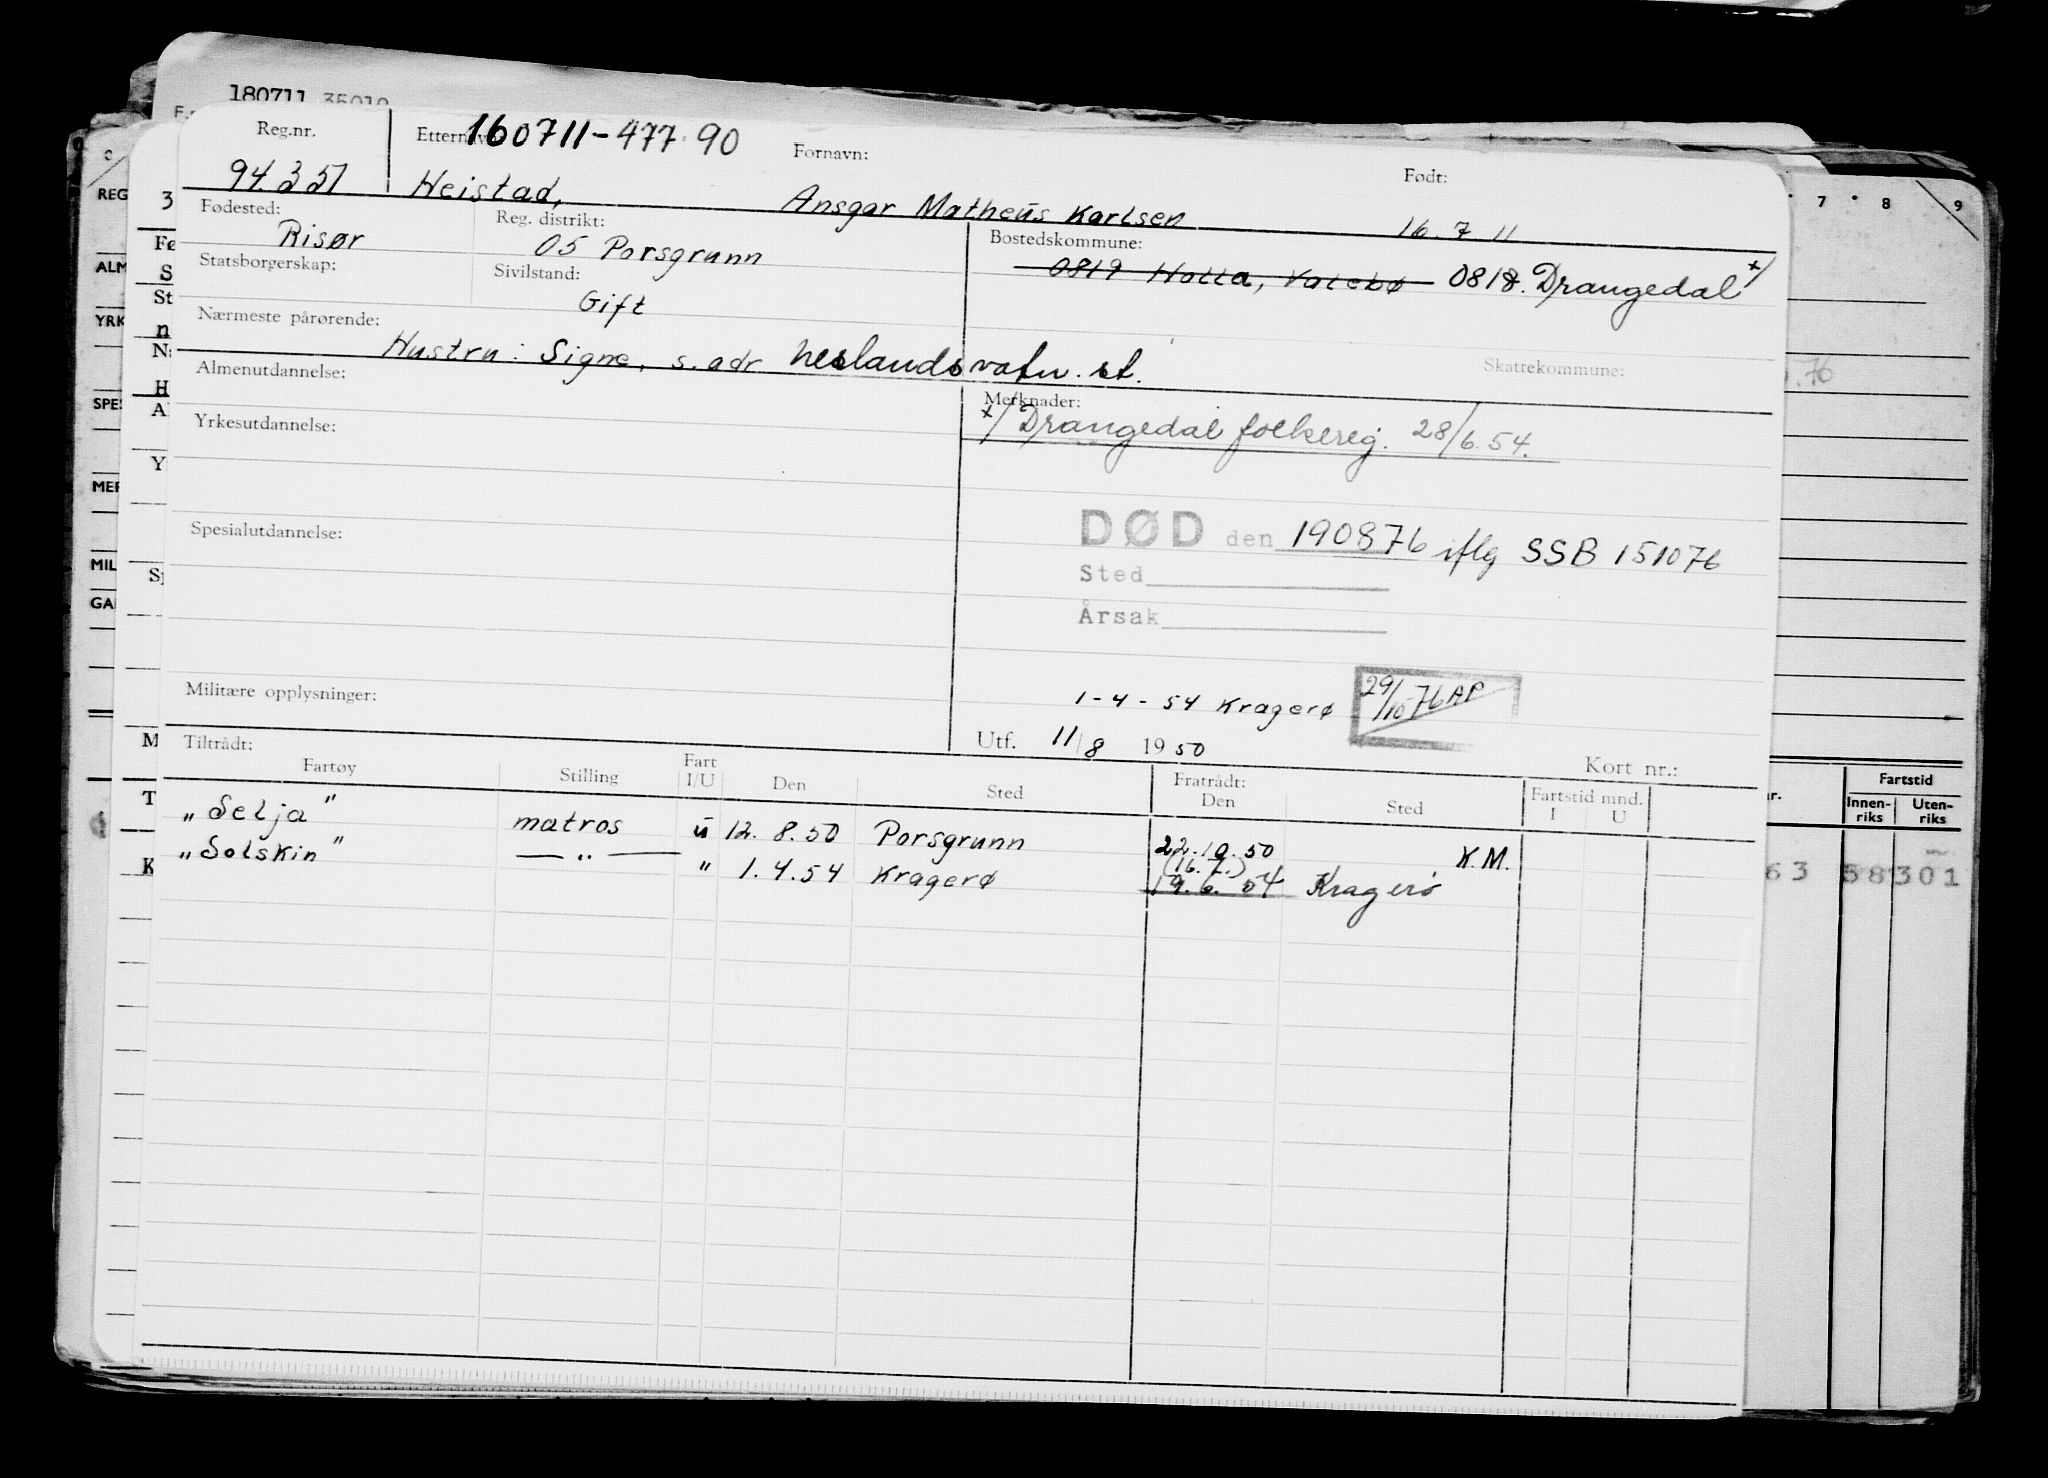 180711 35019
Reg.nr. Etternavn: 160711-477 90 Fornavn: Født:
94.351 Heistad, Ansgar Matheus Karlsen 16. 7 11
Fødested: Risør Reg. distrikt: 05 Porsgrunn Bostedskommune:
0819 Holla, Valebø 0818. Drangedal x/
Statsborgerskap: Sivilstand: Gift
Nærmeste pårørende: Hustru: Signe, s. adr Neslandsvatn. st. Skattekommune:
Almenutdannelse: Merknader:
x/ Drangedal folkereg. 28/6.54.
Yrkesutdannelse:
DØD den 190876 iflg SSB 151076
Spesialutdannelse:
Sted
Årsak
Militære opplysninger:
1-4-54 Kragerø 29/10 76 AP
Utf. 11/8 1950 Kort nr.:
Tiltrådt: Fratrådt:
Fartøy Stilling Fart I/U Den Sted Den Sted Fartstid mnd. I U
„Selja" matros u 12. 8. 50 Porsgrunn 22. 10. 50 K.M.
„Solskin" — " — " 1. 4. 54 Kragerø (16. 7.) 19. 6. 54 Kragerø
REG
ALM
YRK
SPES
MER
MIL
GA
7 8 9
Fartstid
Innen-riks Uten-riks
63 58301